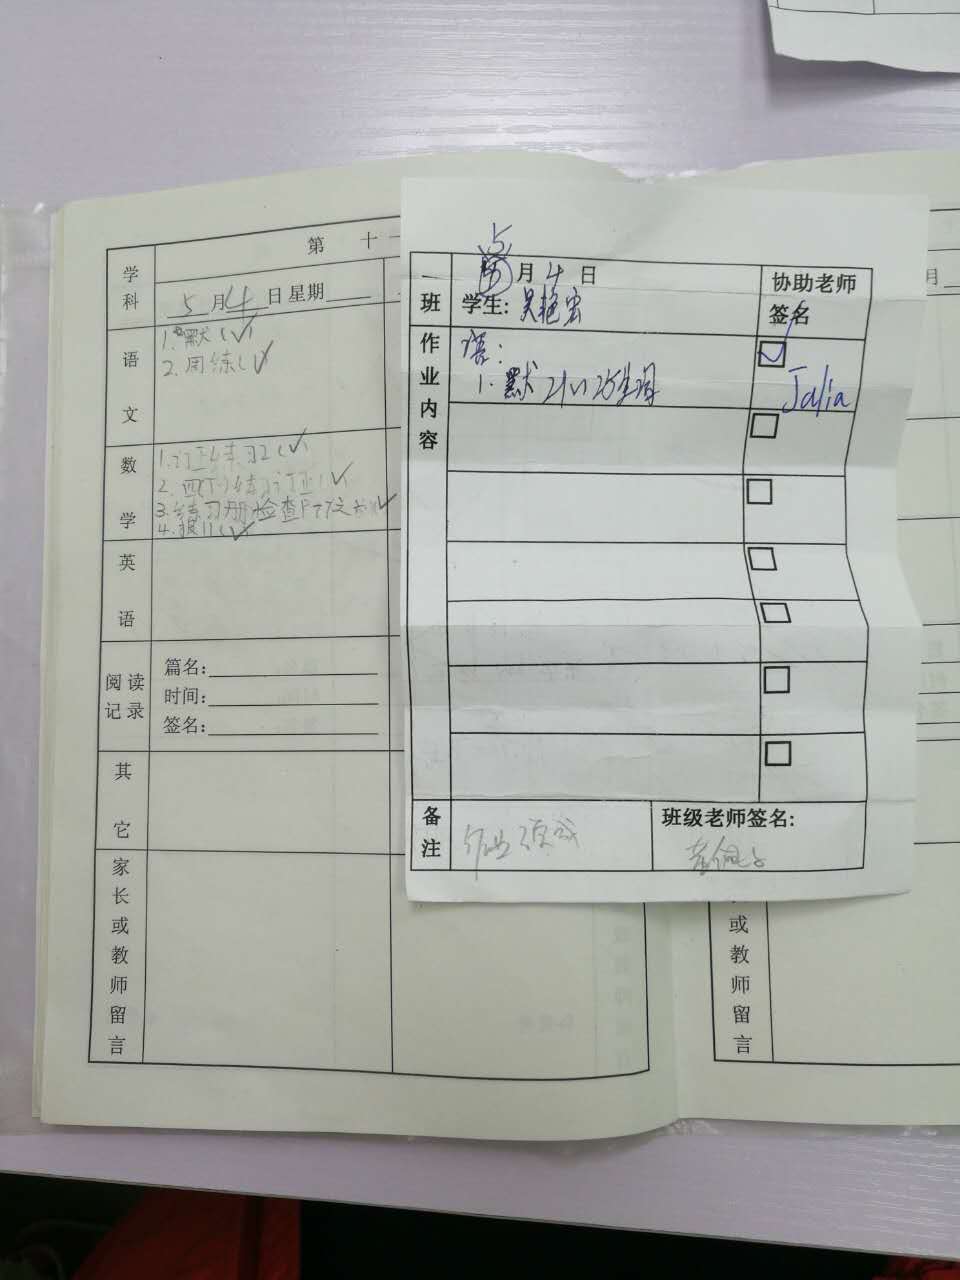 第 十一
学科
5月4日 星期
语文
1.默(✓)
2.周练(✓
数学
1.订正练习2(✓
2.四(下)练习订正(✓
3.练习册检查P77
4.报11(✓
英语
阅读记录
篇名:
时间:
签名:
其它
家长或教师留言
5
月4日
协助老师签名
一班
学生:吴艳宏
作业内容
语:
1.默21、25生词
Julia
备注
作业
班级老师签名:
月
或教师留言